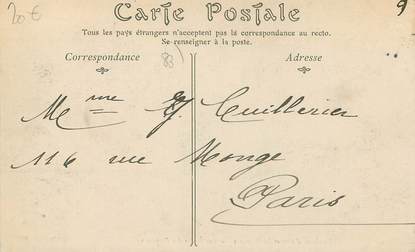 20 €
9
Carte Postale
Tous les pays étrangers n'acceptent pas la correspondance au recto.
Se renseigner à la poste.
Correspondance
83
Adresse
Mme G. Cuillerier
116 rue Monge
Paris